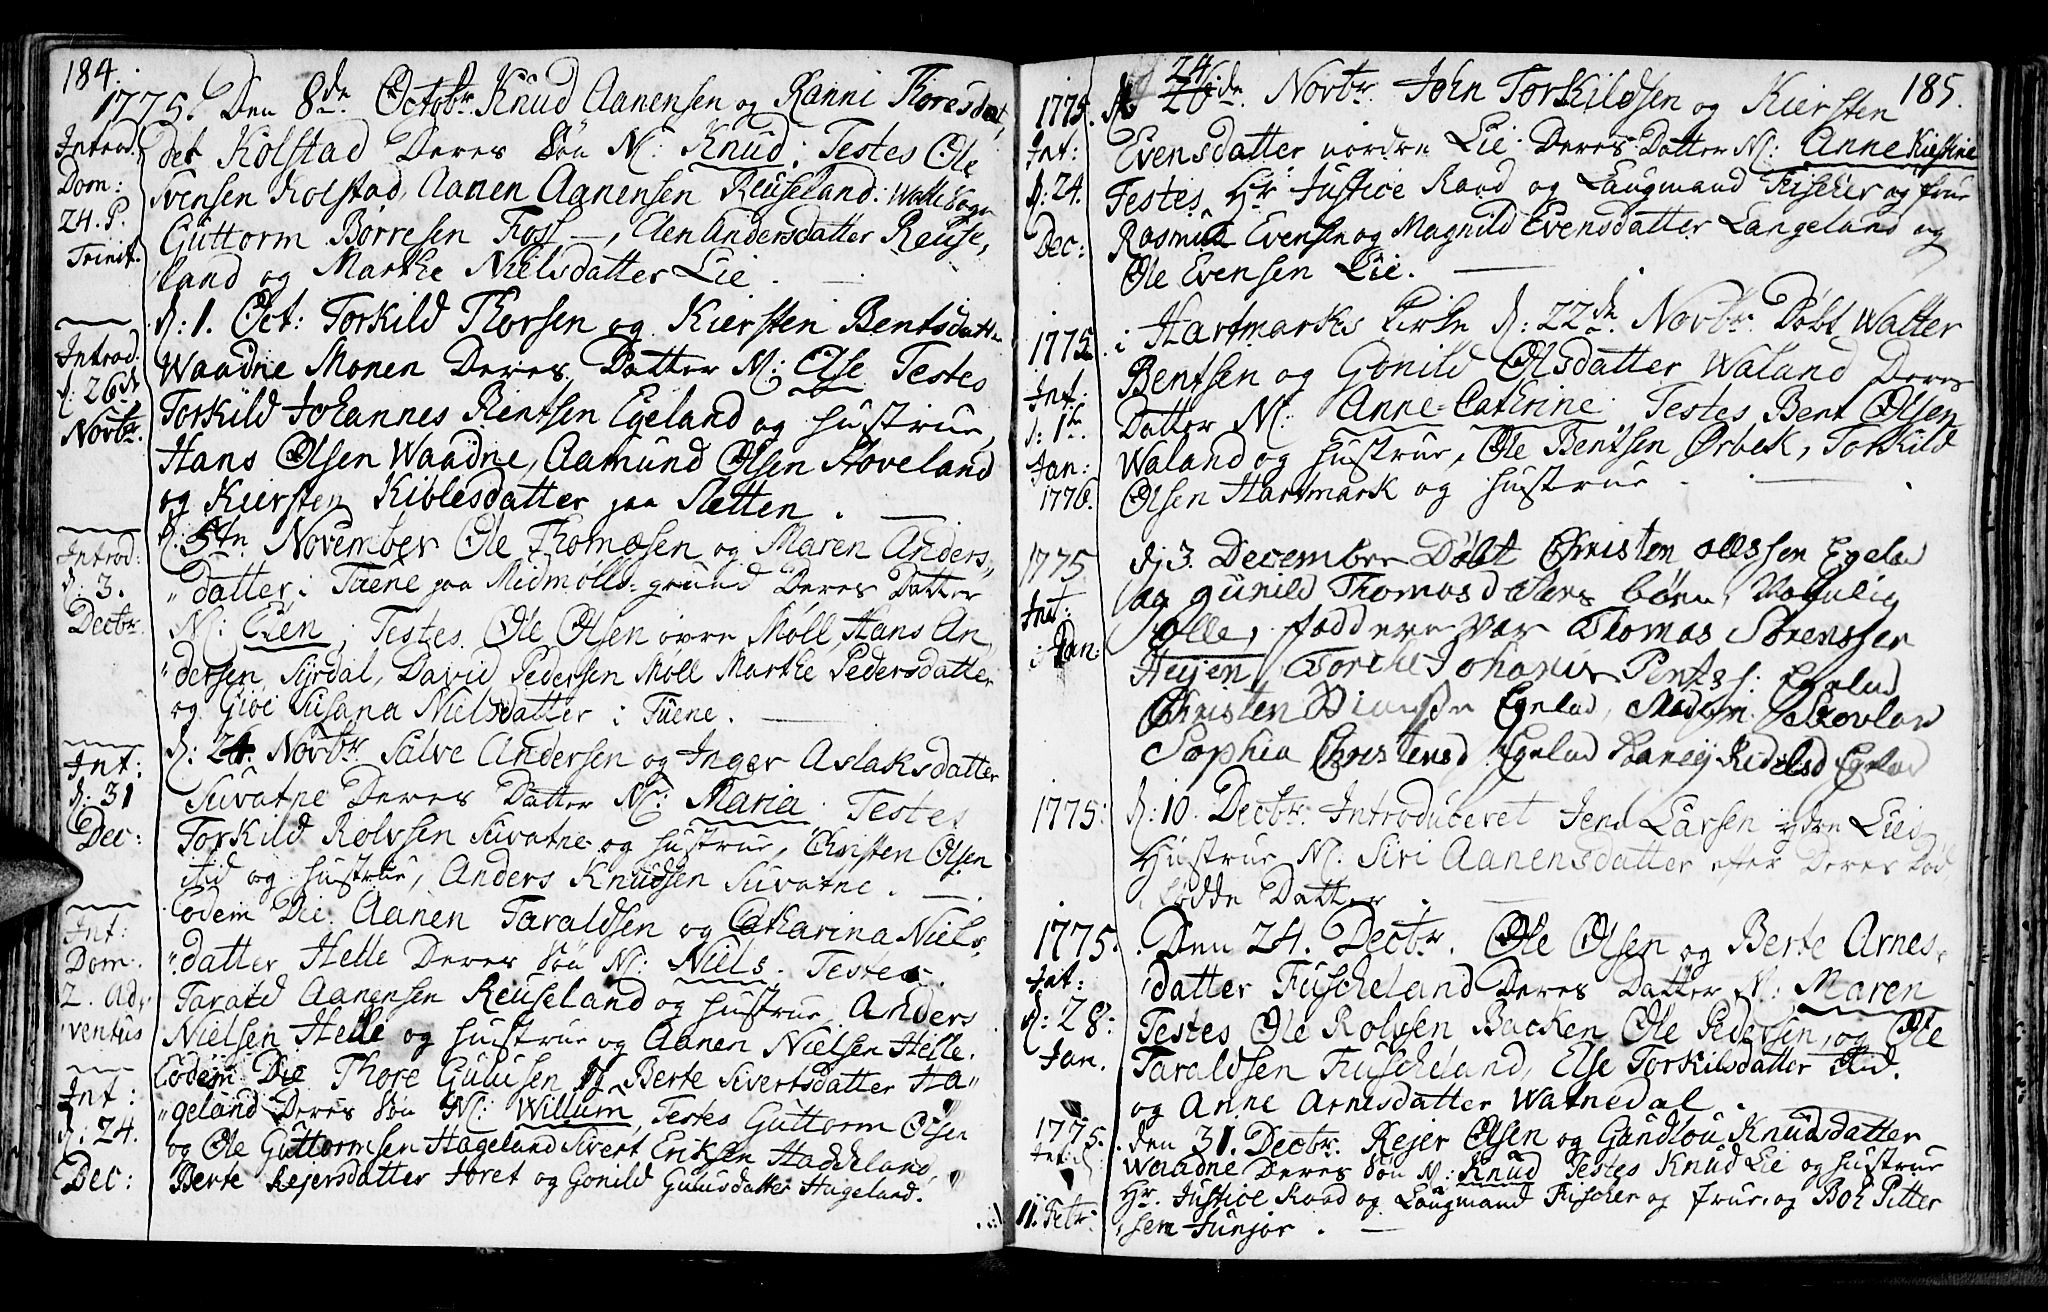 184.
1775. Den 8de Octobr Knud Aanensen og Ranni Thoresdat,
Introd. det Kolstad Deres Søn N: Knud; Testes Ole
Dom: Svensen Kolstad, Aanen Aanensen Reuseland: Walle Sogn
24. P. Guttorm Børresen Foss —, Elen Andersdatter Reuse,
Trinit. land og Marthe Nielsdatter Lie.
d: 1. Oct: Torkild Thorsen og Kiersten Bentsdatt.
Introd. Waadne Monen Deres Datter N: Else Testes
d: 26de Torkild Johannes Bentsen Egeland og hustrue,
Novbr. Hans Olsen Waadne, Aamund Olsen Stoveland
og Kiersten Kiblesdatter paa Sletten.
d. 5te November Ole Thomæsen og Maren Anders,,
Introd: „datter i Tuene paa Midmølls-grund Deres Datter
d: 3. N: Elen; Testes Ole Olsen øvre Møll, Hans An,
Decbr. „dersen Syrdal, David Pedersen Møll Marthe Pedersdatter
og Giøe Susana Nielsdatter i Tuene.
d: 24. Novbr Salve Andersen og Inger Aslaksdatter
Int: Suvatne Deres Datter N: Maria. Testes
d: 31 Torkild Rolvsen Suvatne og hustrue, Christen Olsen
Dec: itid og hustrue, Anders Knudsen Suvatne.
Eodem Die. Aanen Taraldsen og Catharina Niels-
Int: „datter Helle Deres Søn N: Niels. Testes
Dom. Tarald Aanensen Reuseland og hustrue, Anders
2. Ad, Nielsen Helle og hustrue og Aanen Nielsen Helle.
ventus
Eodem Die Thore Gulusen og Berte Sivertsdatter Ha„
Int: „geland Deres Søn N: Willum, Testes Guttorm Olsen
d: 24. og Ole Guttormsen Hageland Sivert Eriksen Haddeland,
Dec: Berte Rejersdatter og Gonild Gulusdatter Hageland.
185.
1775. d 24 26de. Novbr John Torkildsen og Kiersten
Int: Evensdatter nordre Lie Deres Datter N: Anne Kirstine
d: 24. Testes Hr Justice Raad og Laugmand Fischer og frue
Dec: Rasmus Evensen og Magnild Evensdatter Langeland og
Ole Evensen Lie.
1775. i Hartmarks Kirke d: 22de Novbr. Døbt Walter
Bentsen og Gonild Olsdatter Waland Deres
Int: Datter N: Anne-Cathrine. Testes Bent Olsen
d: 1te Waland og hustrue, Ole Bentsen Ørbek, Torkild
Jan: Olsen Hartmark og hustrue.
1776.
1775 dj 3. Decembre Døbt Christen ollssen Egelad
og gunild Thomasdaters børn,
Int: Olle, fadderne var Thomas Sørensser
Jan: Heijen, Johanis Pentss: Egelad
Christen Egelad,
Sophia Christensd Egelad Egelad
1775: d: 10. Decbr. Introduceret Jens Larsen ydre Lies
Hustrue N. Siri Aanensdatter efter Deres Død,
fødde Datter.
1775. Den 24. Decbr. Ole Olsen og Berte Arnes-
Int: „datter Fuscheland Deres Datter N: Maren
d: 28: Testes Ole Rolvsen Backen Ole Pedersen, og Ole
Jan. Taraldsen Fuscheland, Else Torkilsdatter itid.
og Anne Arnesdatter Watnedal.
1775. den 31. Decbr. Rejer Olsen og Gundlou Knudsdatter
Int: d: Waadne Deres Søn N: Knud Testes Knud Lie og hustrue
11. Febr. Hr. Justice Raad og Laugmand Fischer og frue, og Boh Pitter
sem Junjor.